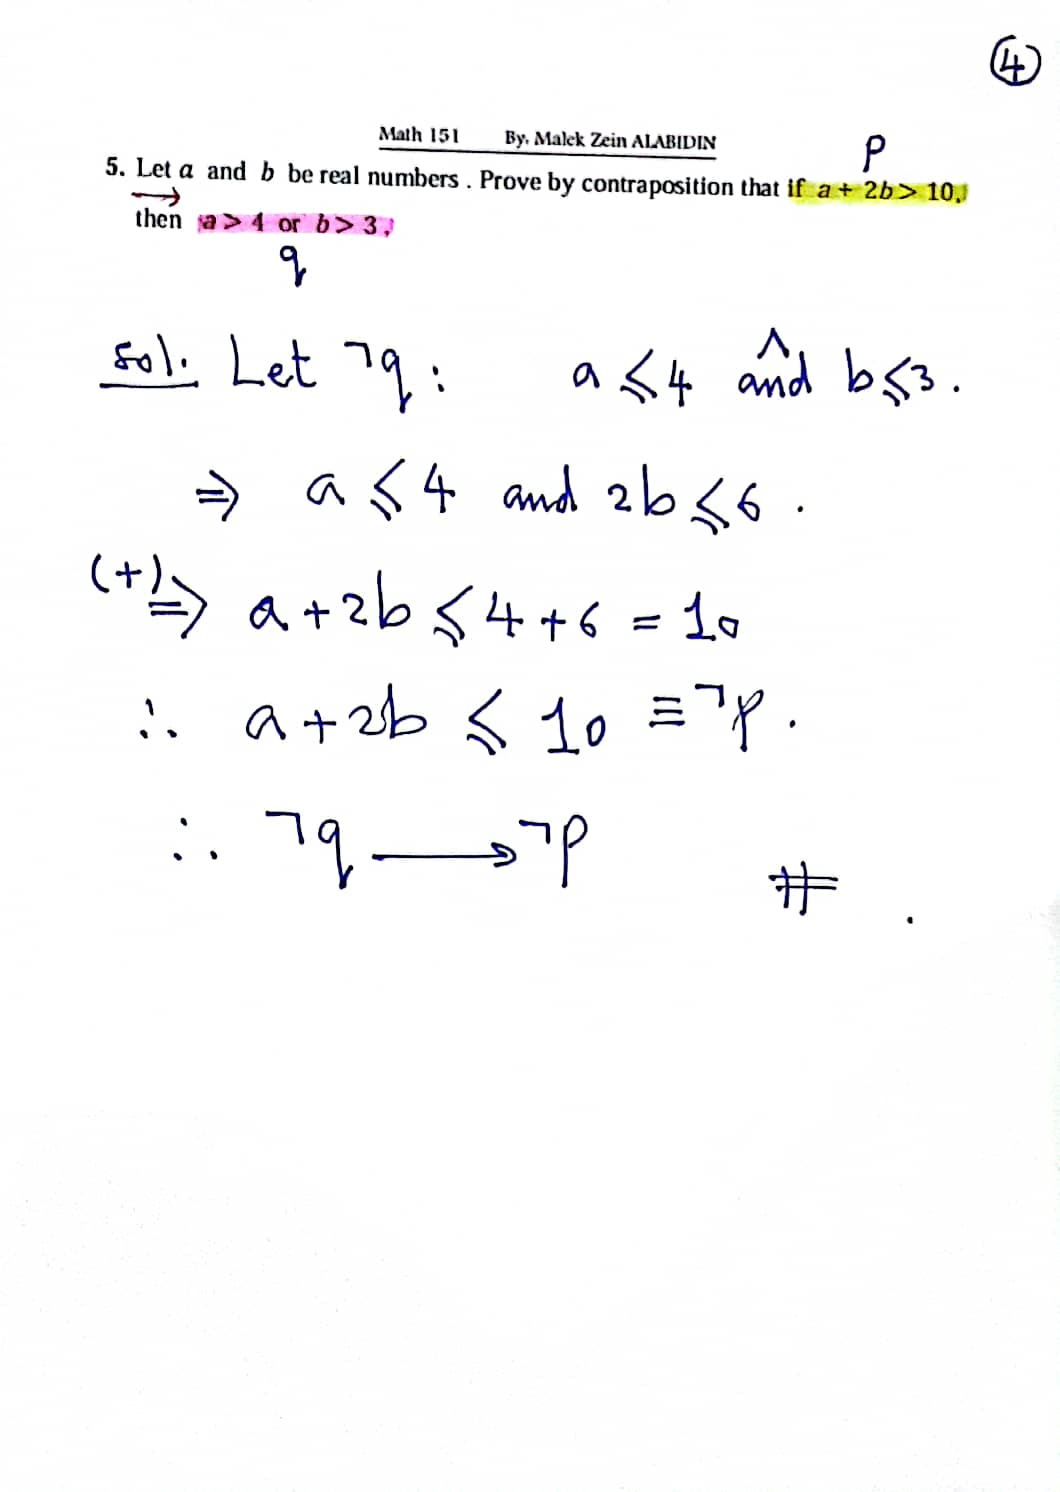 ④
Math 151 By. Malek Zein ALABIDIN
P
5. Let a and b be real numbers . Prove by contraposition that if a + 2b > 10,
→
then a > 4 or b > 3,
q
Sol. Let ¬q : a ⩽ 4 and ∧ b ⩽ 3 .
⇒ a ⩽ 4 and 2b ⩽ 6 .
(+) ⇒ a + 2b ⩽ 4 + 6 = 10
∴ a + 2b ⩽ 10 ≡ ¬p .
∴ ¬q → ¬p # .